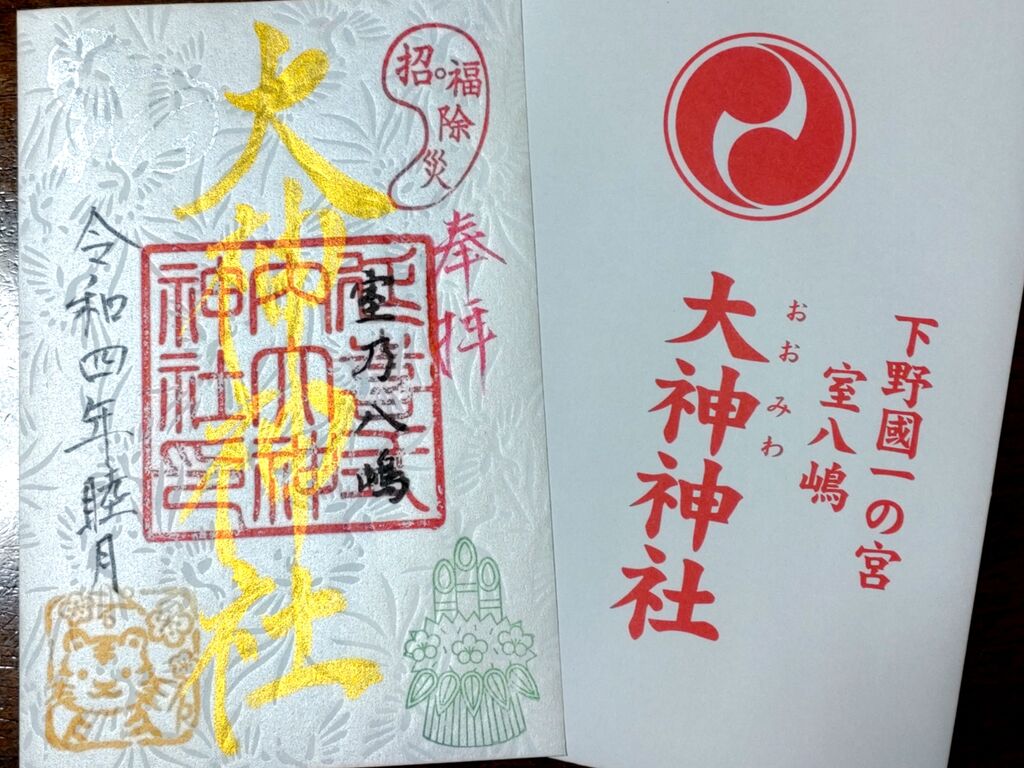 招福除災
奉拝
大神神社
室乃八嶋
神社
令和四年睦月
下野國一の宮
室八嶋
おおみわ
大神神社